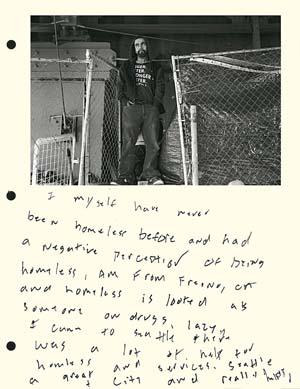 I myself have never
been homeless before and had
a negative perception of being
homeless, I AM From Fresno, CA
and homeless is looked as
someone on drugs, lazy
I came to seattle there
was a lot of help for
homeless and services. Seattle
a great city and really helps